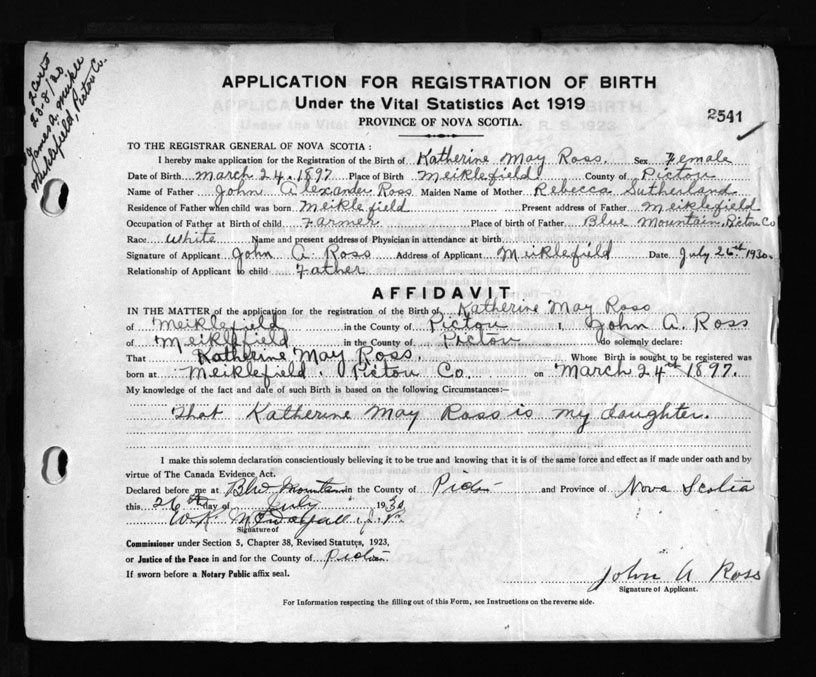 2 Certs
23/8/30
James A. Meikle
Meiklefield, Pictou Co.
APPLICATION FOR REGISTRATION OF BIRTH
Under the Vital Statistics Act 1919
PROVINCE OF NOVA SCOTIA.
2541
TO THE REGISTRAR GENERAL OF NOVA SCOTIA :
I hereby make application for the Registration of the Birth of Katherine May Ross. Sex Female
Date of Birth March 24. 1897 Place of Birth Meiklefield County of Pictou
Name of Father John Alexander Ross Maiden Name of Mother Rebecca Sutherland
Residence of Father when child was born Meiklefield Present address of Father Meiklefield
Occupation of Father at Birth of child Farmer Place of birth of Father Blue Mountain, Pictou Co
Race White Name and present address of Physician in attendance at birth
Signature of Applicant John A. Ross Address of Applicant Meiklefield Date July 26th 1930.
Relationship of Applicant to child Father
AFFIDAVIT
IN THE MATTER of the application for the registration of the Birth of Katherine May Ross
of Meiklefield in the County of Pictou I, John A. Ross
of Meiklefield in the County of Pictou do solemnly declare:
That Katherine May Ross. Whose Birth is sought to be registered was
born at Meiklefield. Pictou Co. on March 24th 1897.
My knowledge of the fact and date of such Birth is based on the following Circumstances:—
That Katherine May Ross is my daughter.
I make this solemn declaration conscientiously believing it to be true and knowing that it is of the same force and effect as if made under oath and by
virtue of The Canada Evidence Act.
Declared before me at Blue Mountain in the County of Pictou and Province of Nova Scotia
this 26th day of July 1930
W. K. J. P.
Signature of
Commissioner under Section 5, Chapter 38, Revised Statutes, 1923,
or Justice of the Peace in and for the County of Pictou
If sworn before a Notary Public affix seal.
John A Ross
Signature of Applicant.
For Information respecting the filling out of this Form, see Instructions on the reverse side.